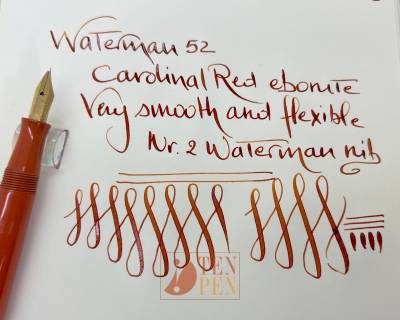 Waterman 52
Cardinal Red ebonite
Very smooth and flexible
Nr. 2 Waterman nib
TEN
PEN